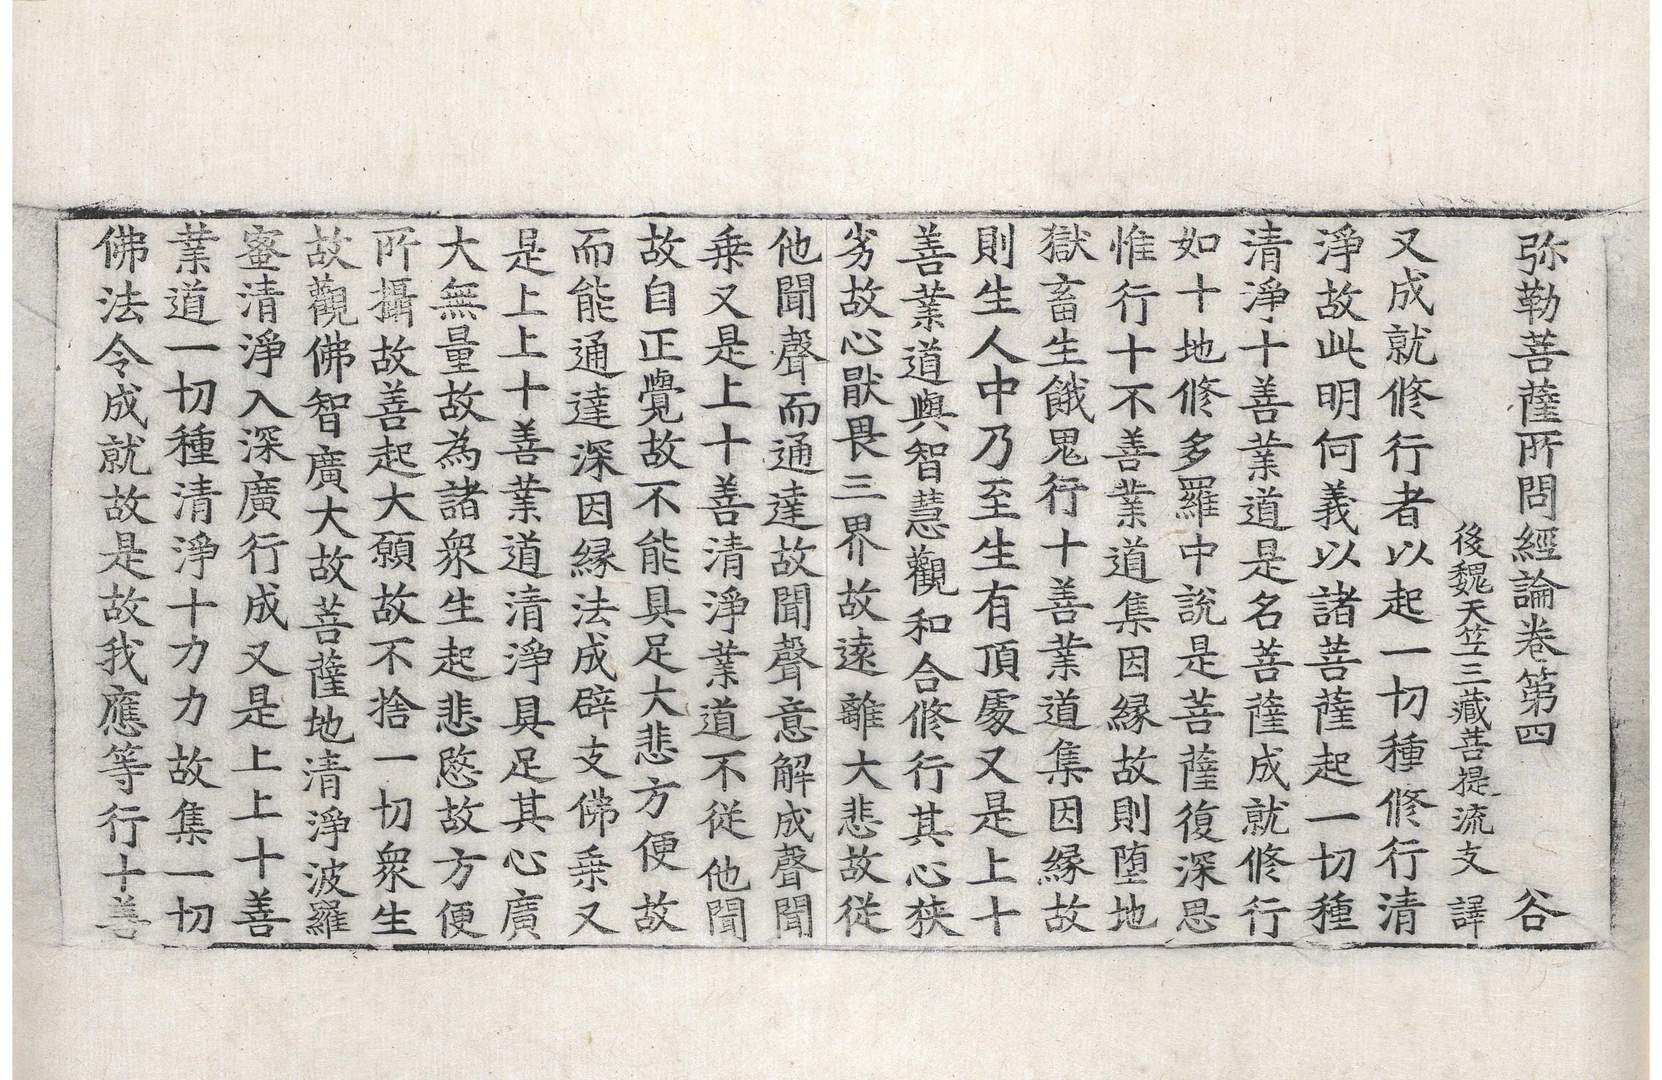 弥勒菩薩所問經論卷第四 谷
後魏天竺三藏菩提流支 譯
又成就修行者以起一切種修行清
淨故此明何義以諸菩薩起一切種
清淨十善業道是名菩薩成就修行
如十地修多羅中說是菩薩復深思
惟行十不善業道集因縁故則墮地
獄畜生餓鬼行十善業道集因縁故
則生人中乃至生有頂處又是上十
善業道與智慧觀和合修行其心狹
劣故心猒畏三界故遠離大悲故從
他聞聲而通達故聞聲意解成聲聞
乗又是上十善清淨業道不從他聞
故自正覺故不能具足大悲方便故
而能通達深因縁法成辟支佛乗又
是上上十善業道清淨具足其心廣
大無量故為諸衆生起悲愍故方便
所攝故善起大願故不捨一切衆生
故觀佛智廣大故菩薩地清淨波羅
蜜清淨入深廣行成又是上上十善
業道一切種清淨十力力故集一切
佛法令成就故是故我應等行十善